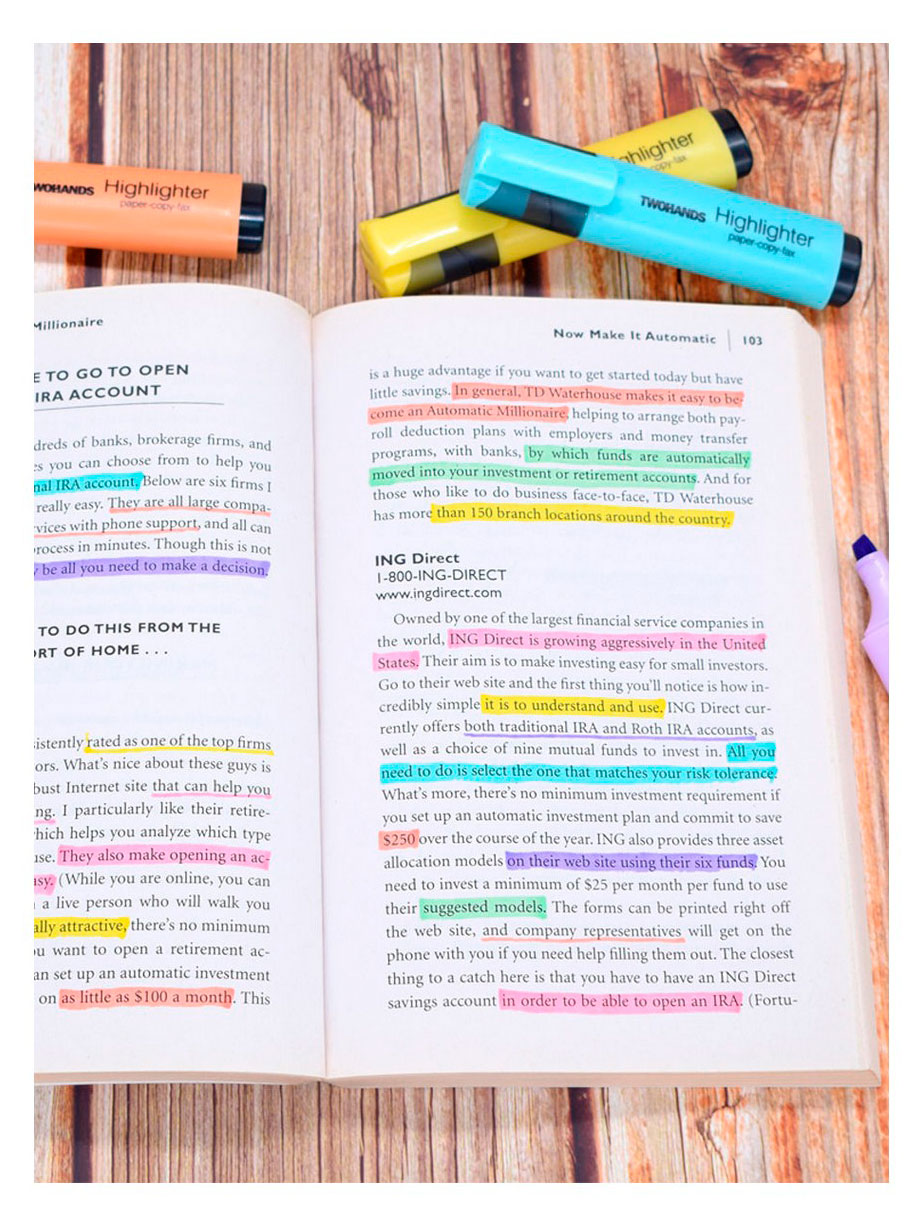 TWOHANDS Highlighter
paper-copy-fax
Highlighter
paper-copy-fax
TWOHANDS Highlighter
paper-copy-fax
Millionaire
E TO GO TO OPEN
IRA ACCOUNT
dreds of banks, brokerage firms, and
es you can choose from to help you
nal IRA account. Below are six firms I
really easy. They are all large compa-
vices with phone support, and all can
process in minutes. Though this is not
y be all you need to make a decision.
TO DO THIS FROM THE
ORT OF HOME . . .
sistently rated as one of the top firms
ors. What's nice about these guys is
bust Internet site that can help you
ng. I particularly like their retire-
which helps you analyze which type
use. They also make opening an ac-
sy. (While you are online, you can
a live person who will walk you
ally attractive, there's no minimum
u want to open a retirement ac-
an set up an automatic investment
on as little as $100 a month. This
Now Make It Automatic | 103
is a huge advantage if you want to get started today but have
little savings. In general, TD Waterhouse makes it easy to be-
come an Automatic Millionaire, helping to arrange both pay-
roll deduction plans with employers and money transfer
programs, with banks, by which funds are automatically
moved into your investment or retirement accounts. And for
those who like to do business face-to-face, TD Waterhouse
has more than 150 branch locations around the country.
ING Direct
1-800-ING-DIRECT
www.ingdirect.com
Owned by one of the largest financial service companies in
the world, ING Direct is growing aggressively in the United
States. Their aim is to make investing easy for small investors.
Go to their web site and the first thing you'll notice is how in-
credibly simple it is to understand and use. ING Direct cur-
rently offers both traditional IRA and Roth IRA accounts, as
well as a choice of nine mutual funds to invest in. All you
need to do is select the one that matches your risk tolerance.
What's more, there's no minimum investment requirement if
you set up an automatic investment plan and commit to save
$250 over the course of the year. ING also provides three asset
allocation models on their web site using their six funds. You
need to invest a minimum of $25 per month per fund to use
their suggested models. The forms can be printed right off
the web site, and company representatives will get on the
phone with you if you need help filling them out. The closest
thing to a catch here is that you have to have an ING Direct
savings account in order to be able to open an IRA. (Fortu-